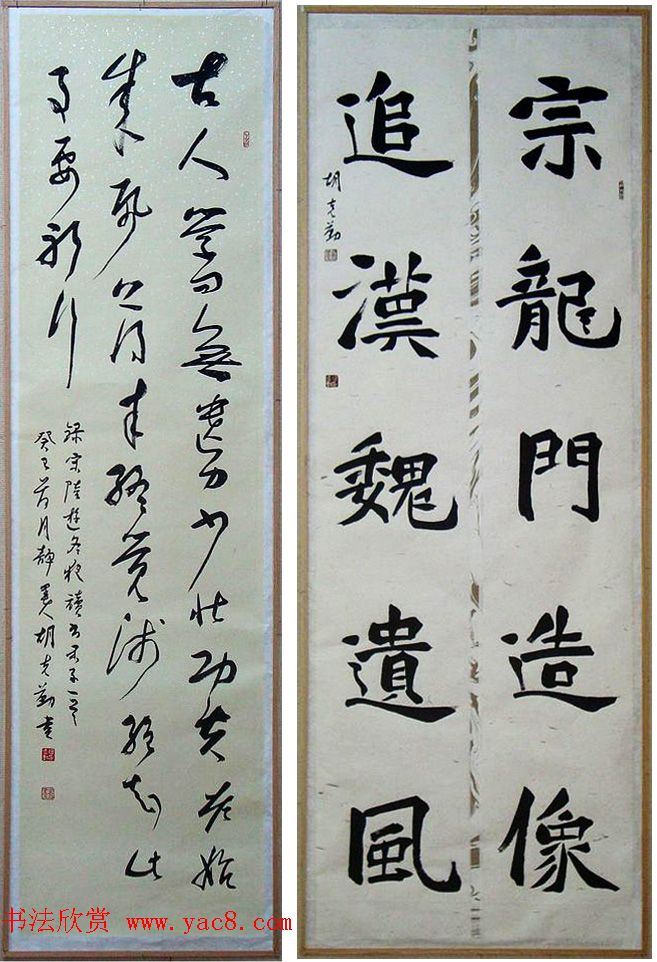 古人學問無遺力少壯功夫老始
成紙上得來終覺淺絕知此
事要躬行
錄宋陸游冬夜讀書示子一首
月靜墨人胡克勤書
宗龍門造像
追漢魏遺風
胡克勤
书法欣赏 www.yac8.com